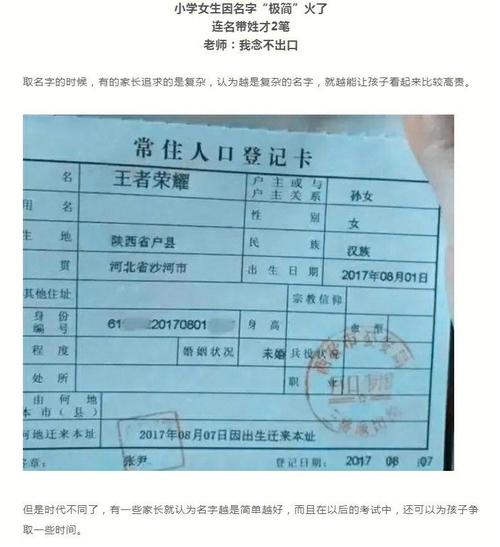 小学女生因名字“极简”火了
连名带姓才2笔
老师：我念不出口
取名字的时候，有的家长追求的是复杂，认为越是复杂的名字，就越能让孩子看起来比较高贵。
常住人口登记卡
名 王者荣耀 户主或与户主关系 孙女
用名 性别 女
生地 陕西省户县 民族 汉族
贯 河北省沙河市 出生日期 2017年08月01日
其他住址 宗教信仰
身份编号 61 20170801 身高 血型
程度 婚姻状况 未婚 兵役状况
处所 职业
由何地本市（县）
何地迁来本址 2017年08月07日因出生迁来本址
签章： 张尹 登记日期： 2017 08 07
但是时代不同了，有一些家长就认为名字越是简单越好，而且在以后的考试中，还可以为孩子争
取一些时间。